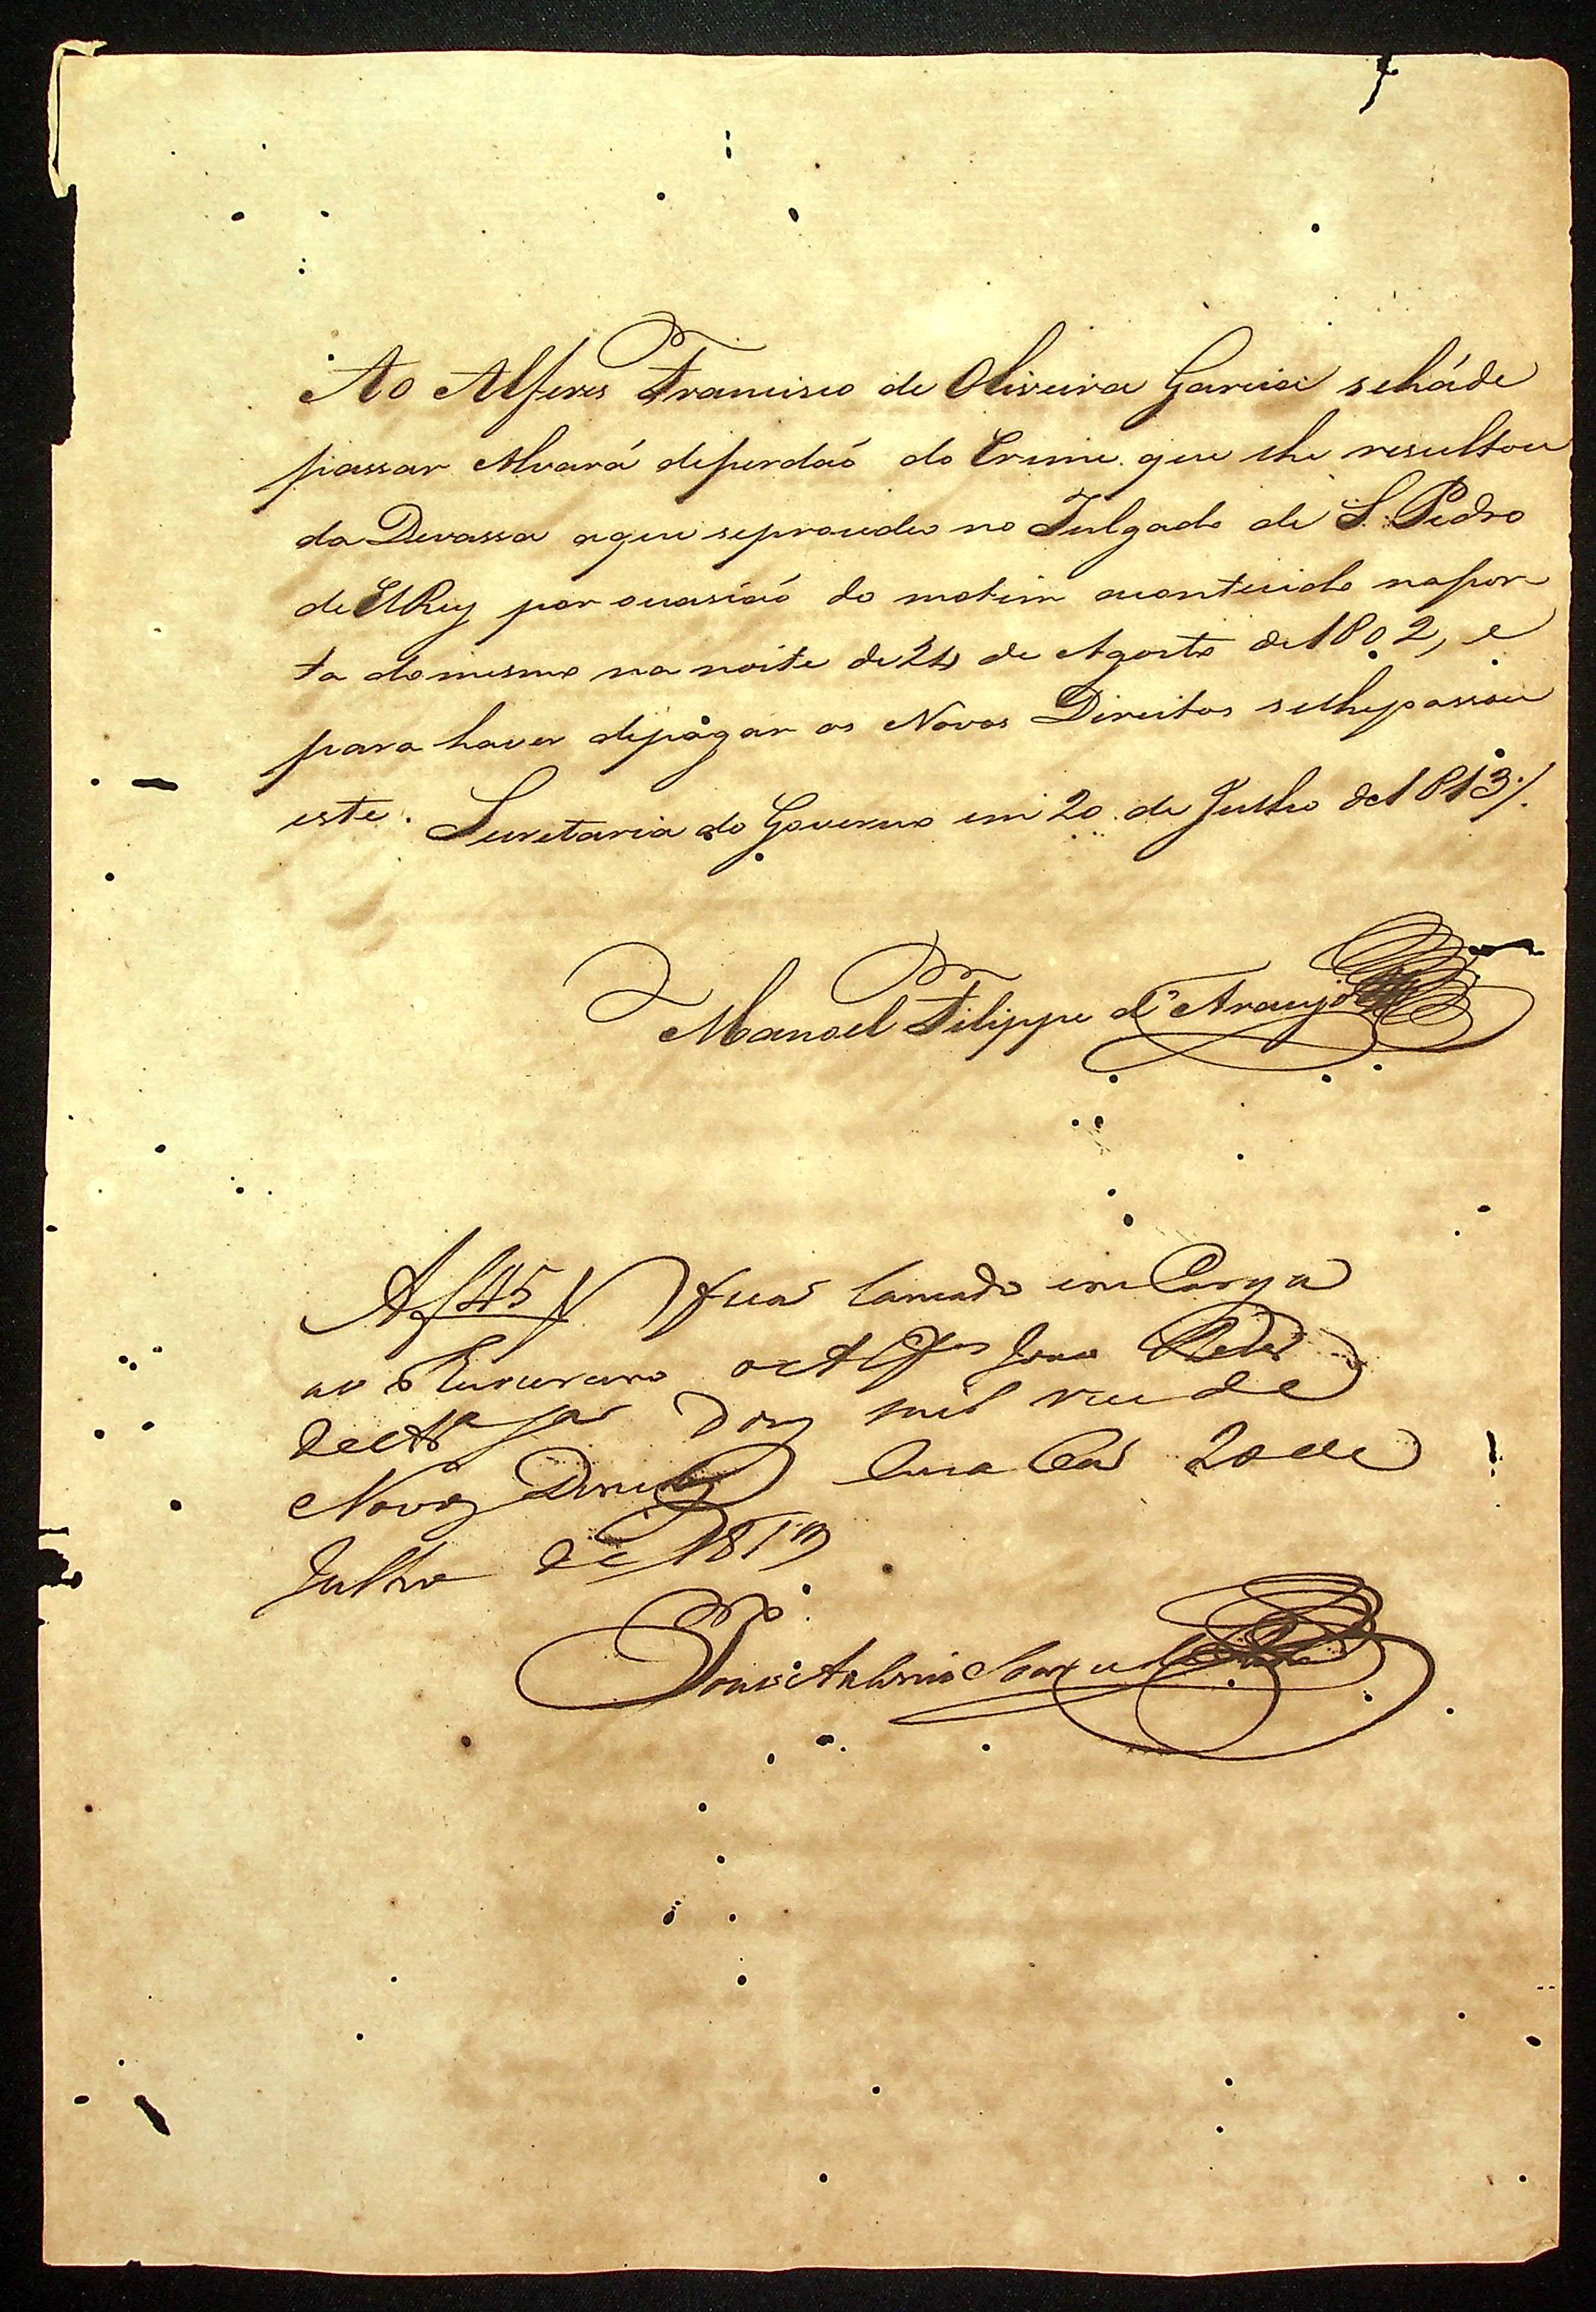 Ao Alferes Francisco de Oliveira Garcia sehade
passar Alvará deperdaõ do Crime que lhe resultou
da Devassa aque seprocedeo no Julgado de S. Pedro
de ElRey por ocasiaõ do motim acontecido napor
ta domesmo na noite de 24 de Agosto de 1802, e
para haver depagar os Novos Direitos selhepassou
este. Secretaria do Governo em 20 de Julho de 1813
Manoel Filippe d'Araujo
Af 45 fica lancado em Carga
ao Thezoureiro o Alfes Joao
de dous mil reis de
Novos Direitos 20 de
Julho de 1813
Antonio